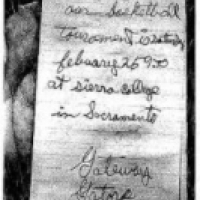 our basketball
tournament is saturday
february 26 9:00
at sierra college
in Sacramento
Gateway
Gators